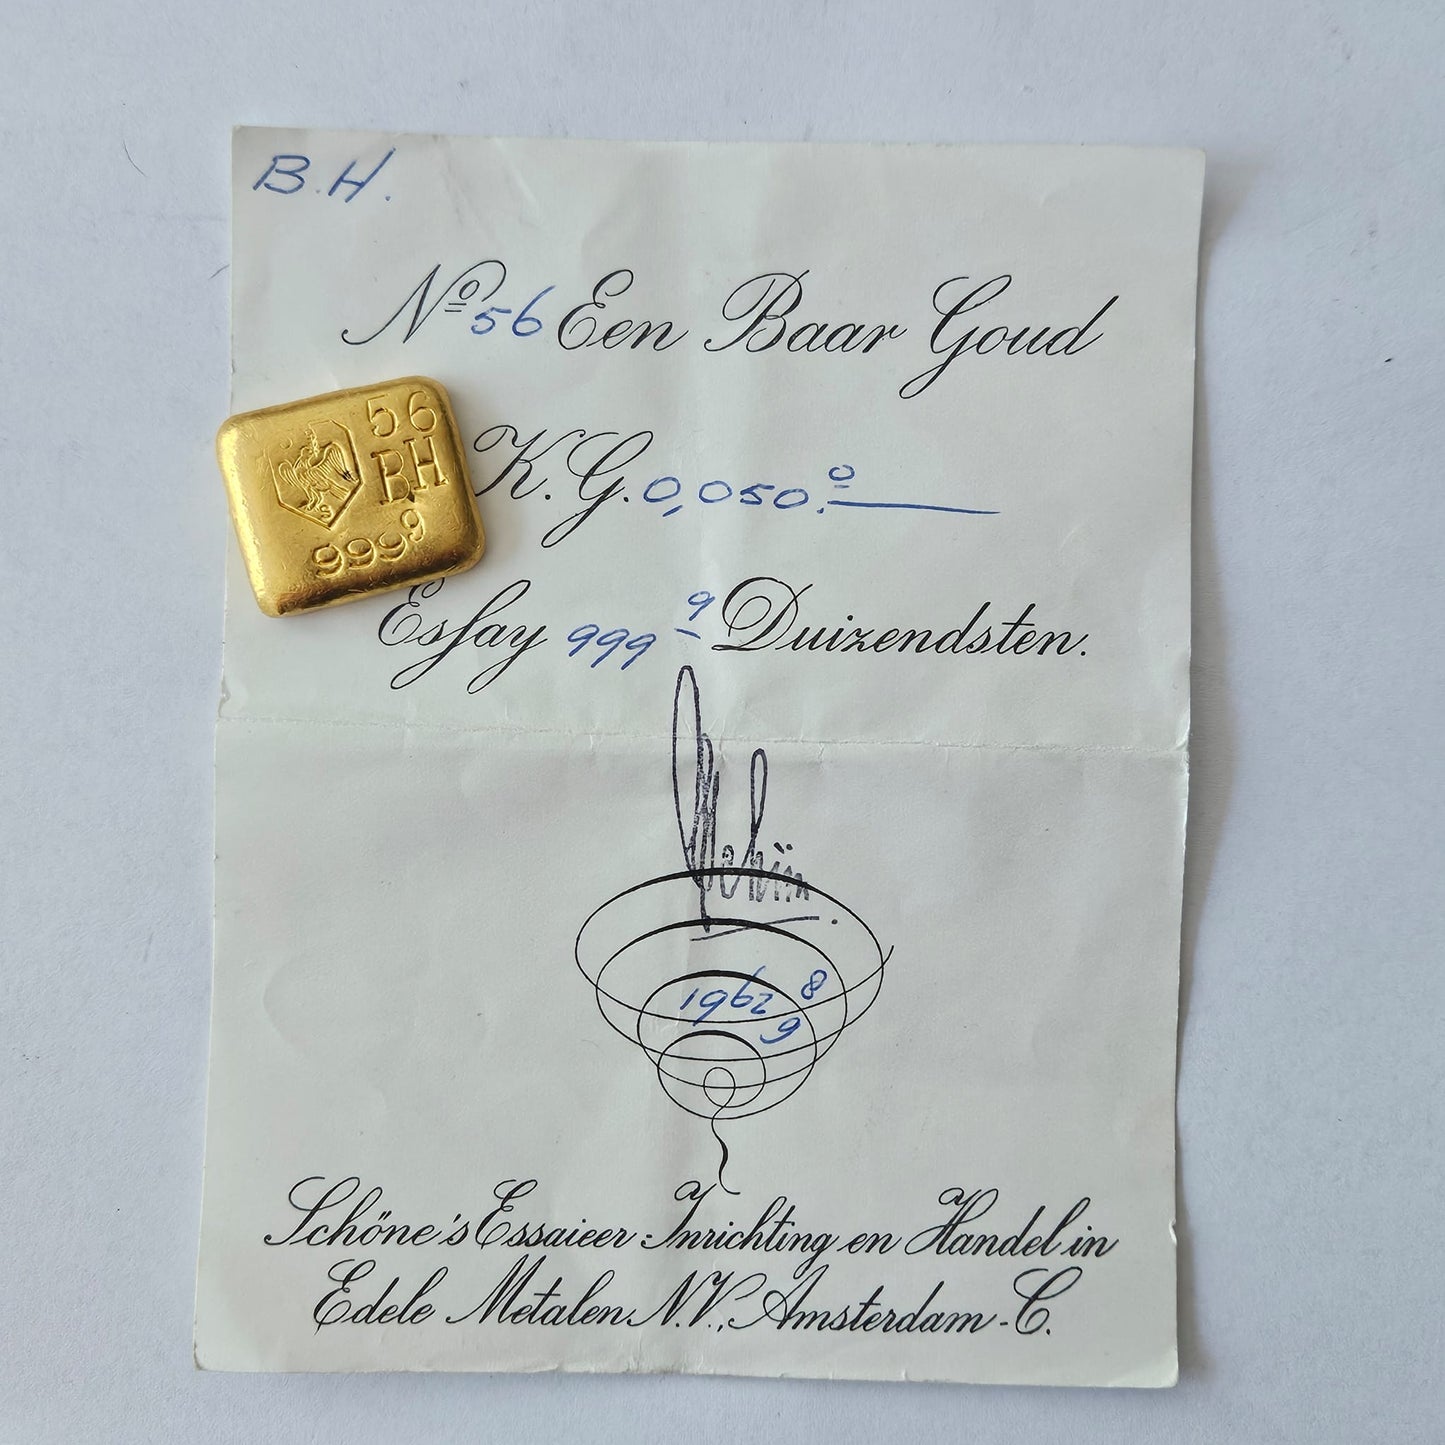 B.H.
Nº 56 Een Baar Goud
56
BH
999⁹
K.G. 0,050.º
Essay 999⁹ Duizendsten.
1962 8
6
Schöne's Essaieer-Inrichting en Handel in
Edele Metalen N.V., Amsterdam-C.